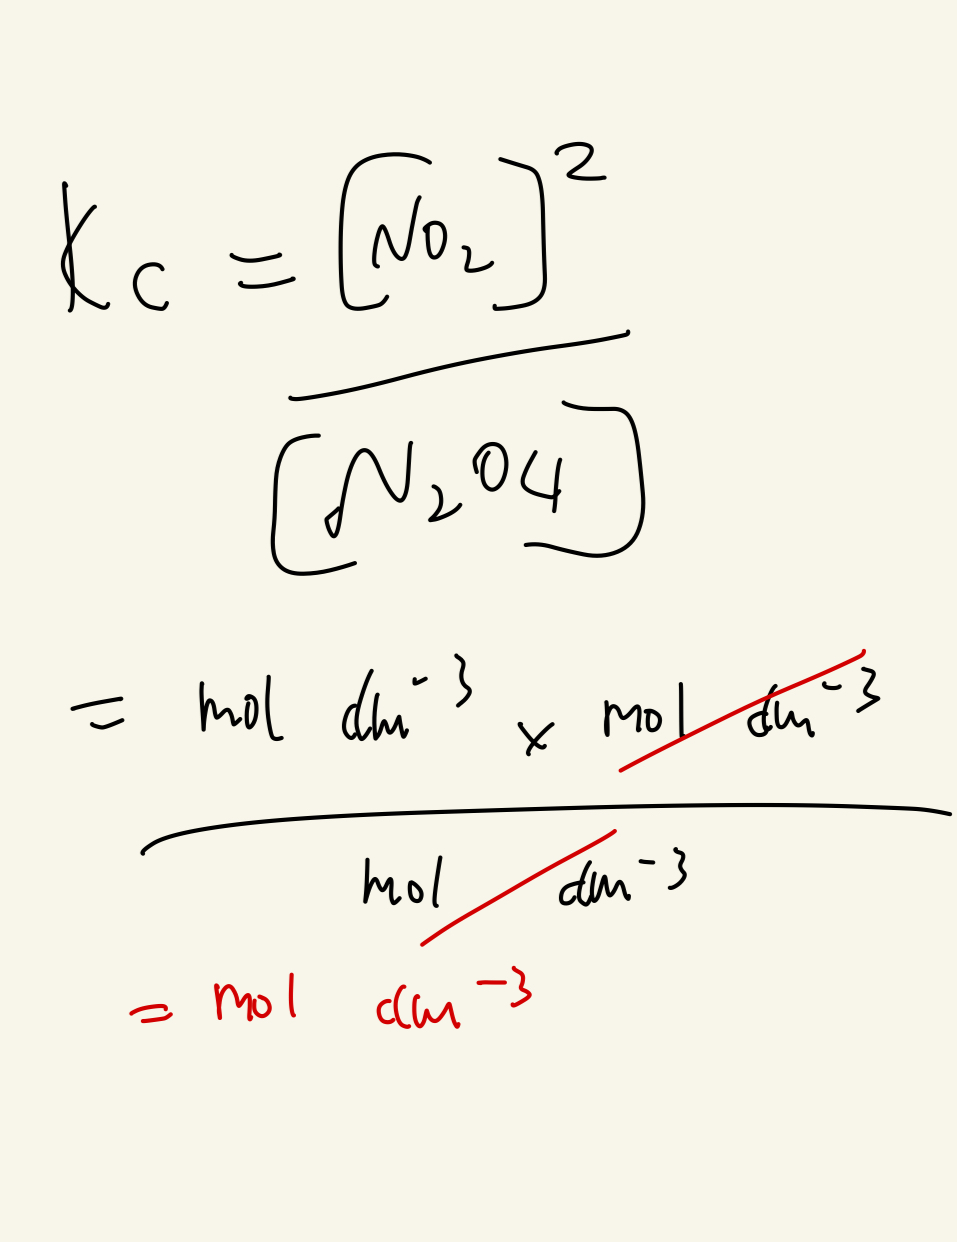 Kc = [NO₂]²
[N₂O4]
= mol dm⁻³ × mol dm⁻³
mol dm⁻³
= mol dm⁻³